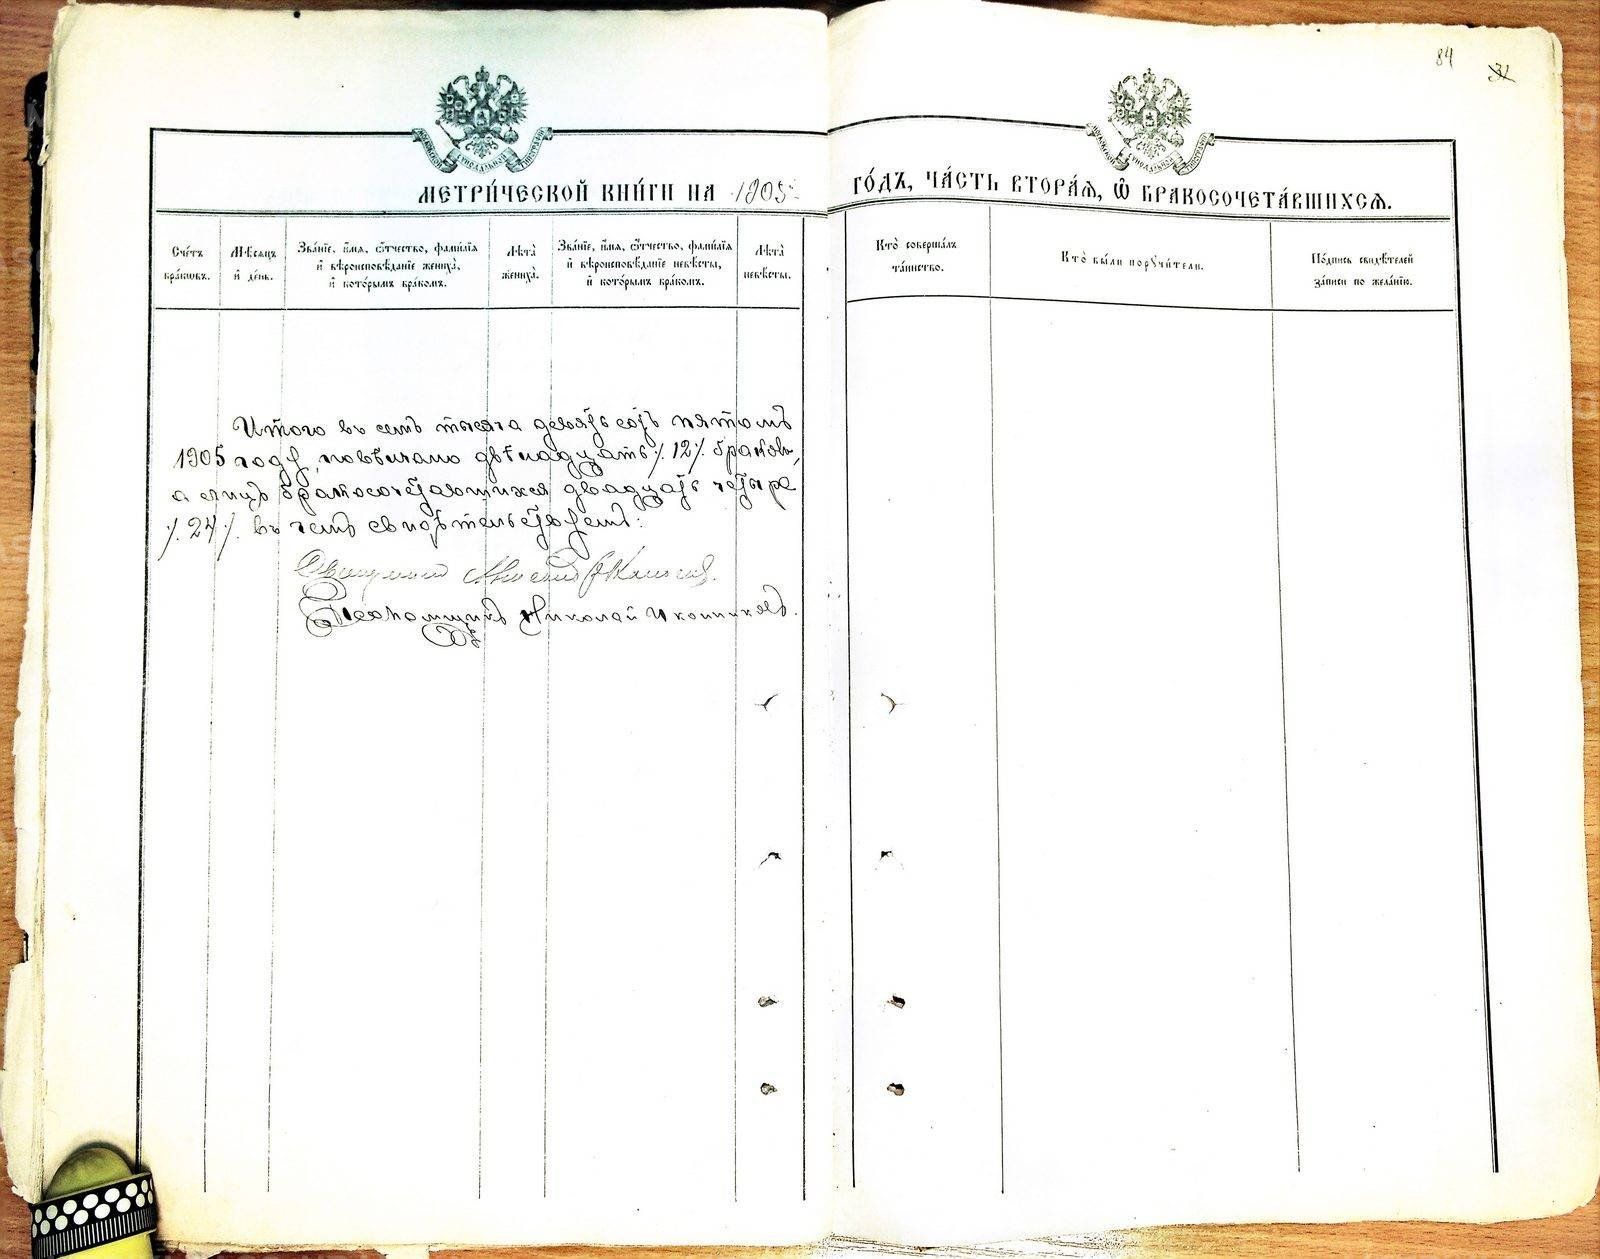 84
31
МЕТРИ́ЧЕСКОЙ КНИ́ГИ НА 1905 ГО́ДЪ, ЧА́СТЬ ВТОРА́Ѧ, Ѿ БРАКОСОЧЕТА́ВШИХСѦ.
Сче́тъ бра́кѡвъ.
Мѣ́сѧцъ и҆ де́нь.
Зва́нїе, и҆́мѧ, ѻ҆́тчество, фами́лїѧ
и҆ вѣроисповѣ́данїе жениха̀,
и҆ кото́рымъ бра́комъ.
Лѣта̀ жениха̀.
Зва́нїе, и҆́мѧ, ѻ҆́тчество, фами́лїѧ
и҆ вѣроисповѣ́данїе невѣ́сты,
и҆ кото́рымъ бра́комъ.
Лѣта̀ невѣ́сты.
Кто̀ соверша́лъ
та́инство.
Кто̀ бы́ли порꙋчи́тели.
По́дпись свидѣ́телей
за́писи по жела́нїю.
Итого въ семъ тысяча девятьсотъ пятомъ
1905 году, повѣнчано двѣнадцать /. 12 /. браковъ,
а лицъ бракосочетающихся двадцать четыре
/. 24 /. въ чемъ свидѣтельствуемъ:
Священникъ
Псаломщикъ Николай Иконниковъ.